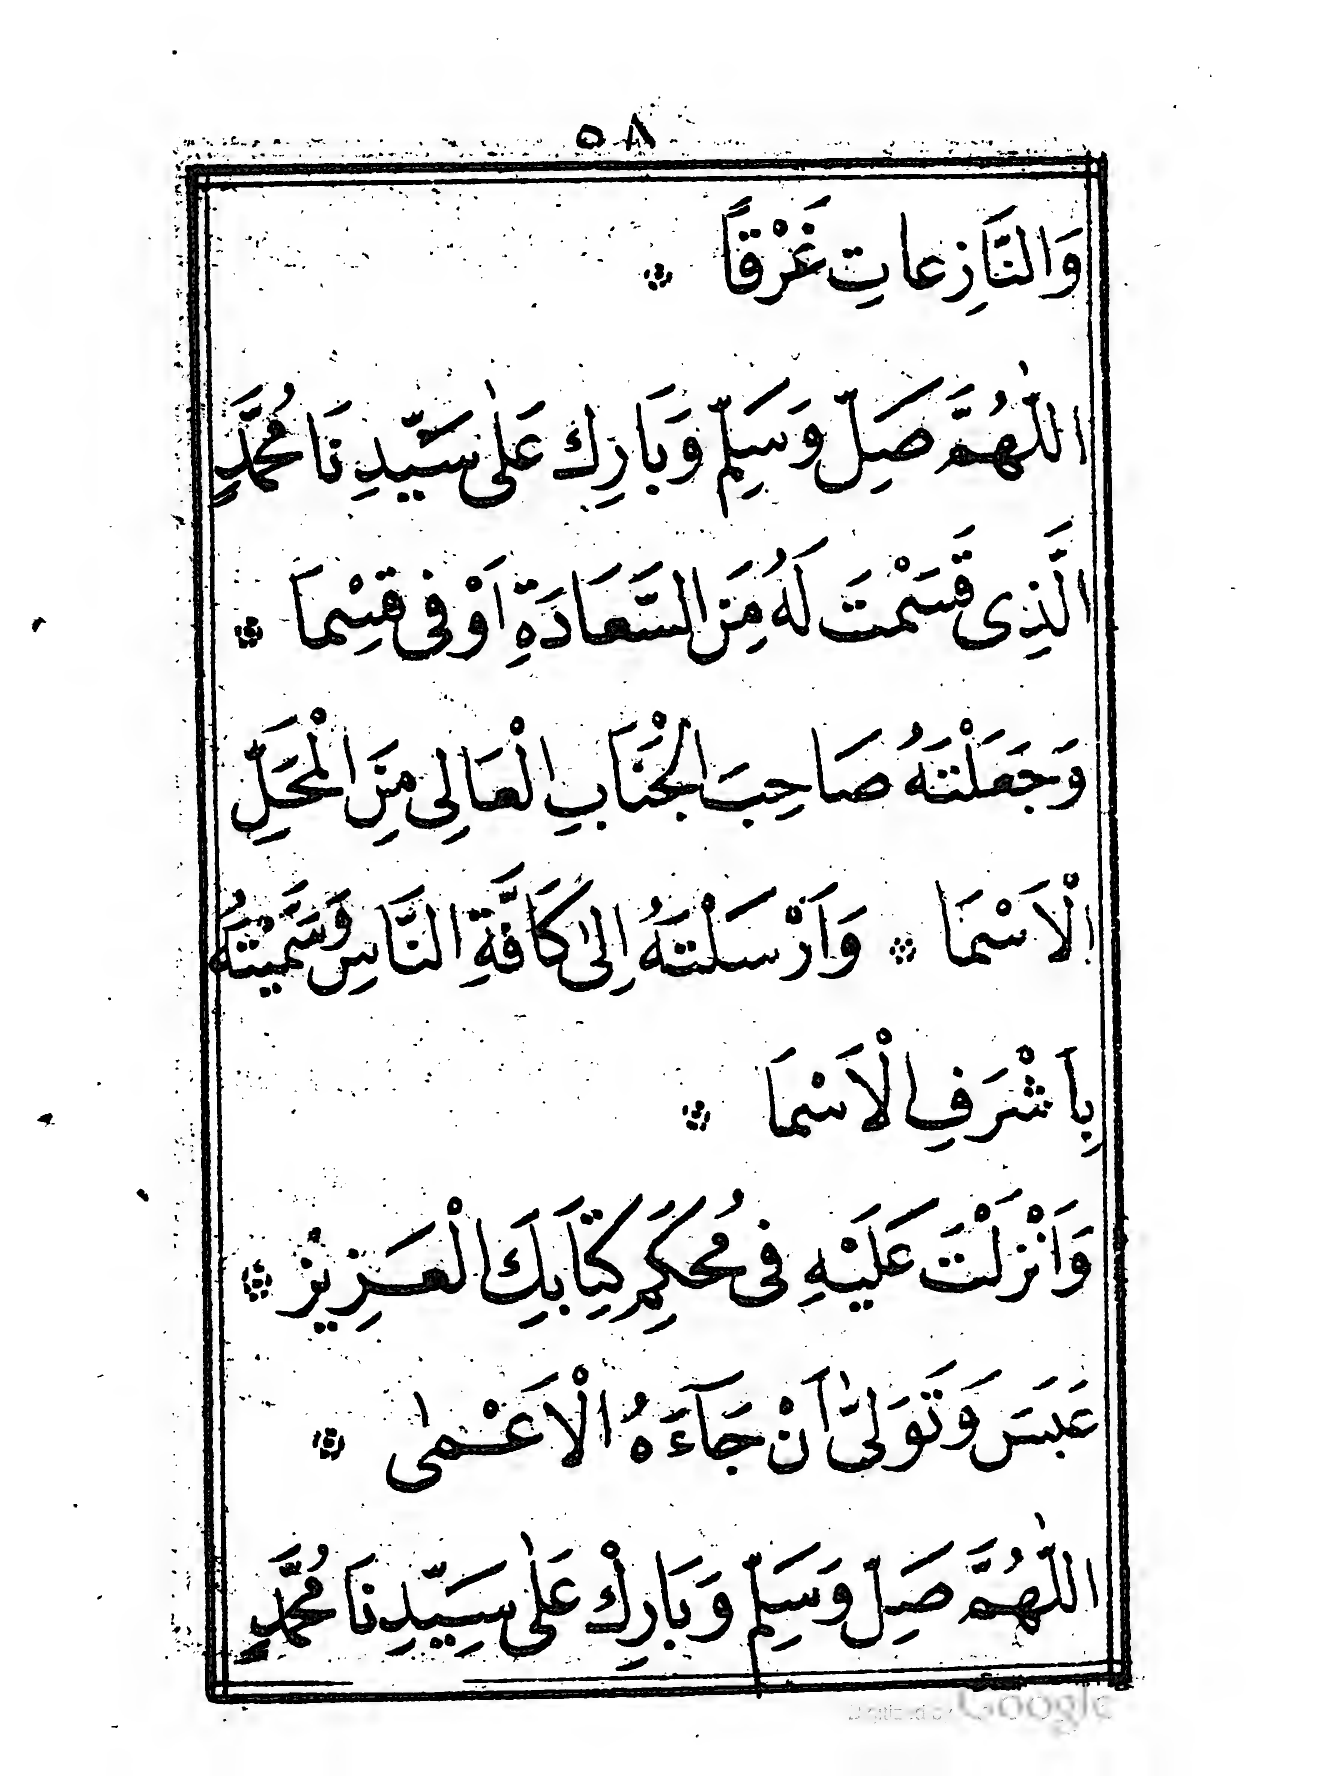 ٥٨
وَالنَّازِعَاتِ غَرْقًا
اللّٰهُمَّ صَلِّ وَسَلِّمْ وَبَارِكْ عَلٰى سَيِّدِنَا مُحَمَّدٍ
الَّذِى قَسَمْتَ لَهُ مِنَ السَّعَادَةِ اَوْفٰى قِسْمَا
وَجَعَلْتَهُ صَاحِبَ الْجَنَابِ الْعَالِى مِنَ الْمَحَلِّ
الْاَسْمَا وَاَرْسَلْتَهُ اِلٰى كَافَّةِ النَّاسِ وَسَمَّيْتَهُ
بِاَشْرَفِ الْاَسْمَا
وَاَنْزَلْتَ عَلَيْهِ فِى مُحْكَمِ كِتَابِكَ الْعَزِيزِ
عَبَسَ وَتَوَلّٰى اَنْ جَآءَهُ الْاَعْمٰى
اللّٰهُمَّ صَلِّ وَسَلِّمْ وَبَارِكْ عَلٰى سَيِّدِنَا مُحَمَّدٍ
Digitized by Google